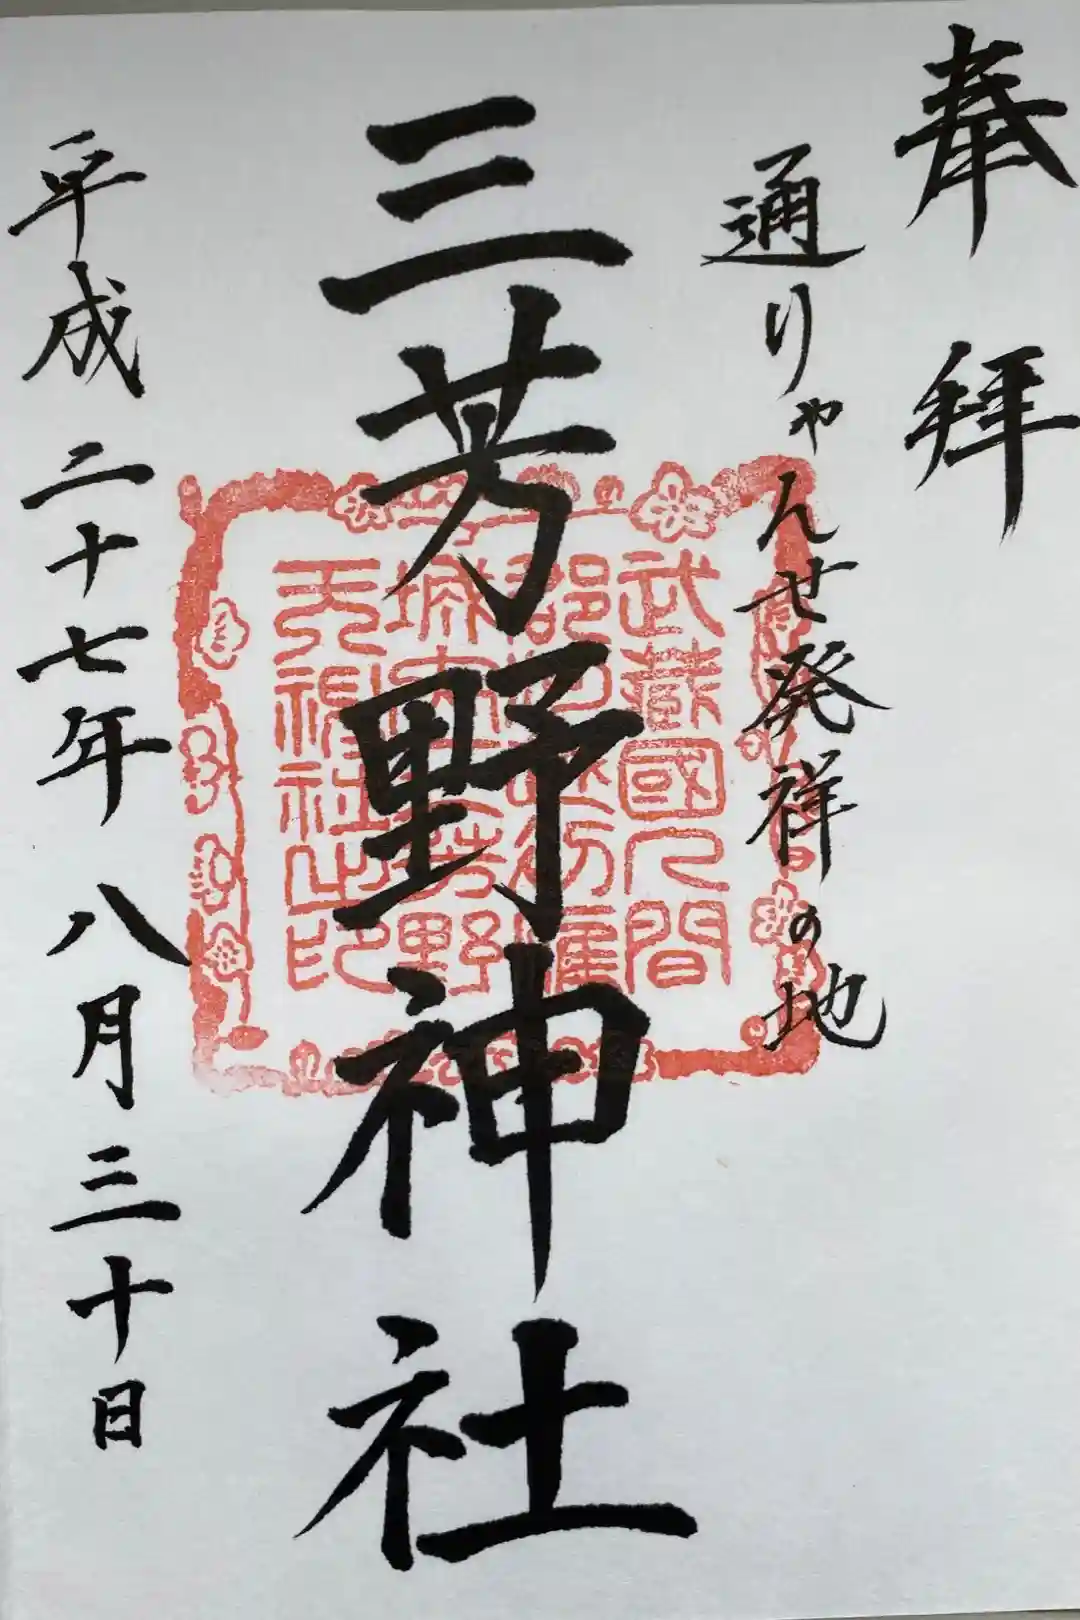 奉拝
通りゃんせ発祥の地
三芳野神社
平成二十七年八月三十日
武蔵國入間
城内三芳野
天神社之印